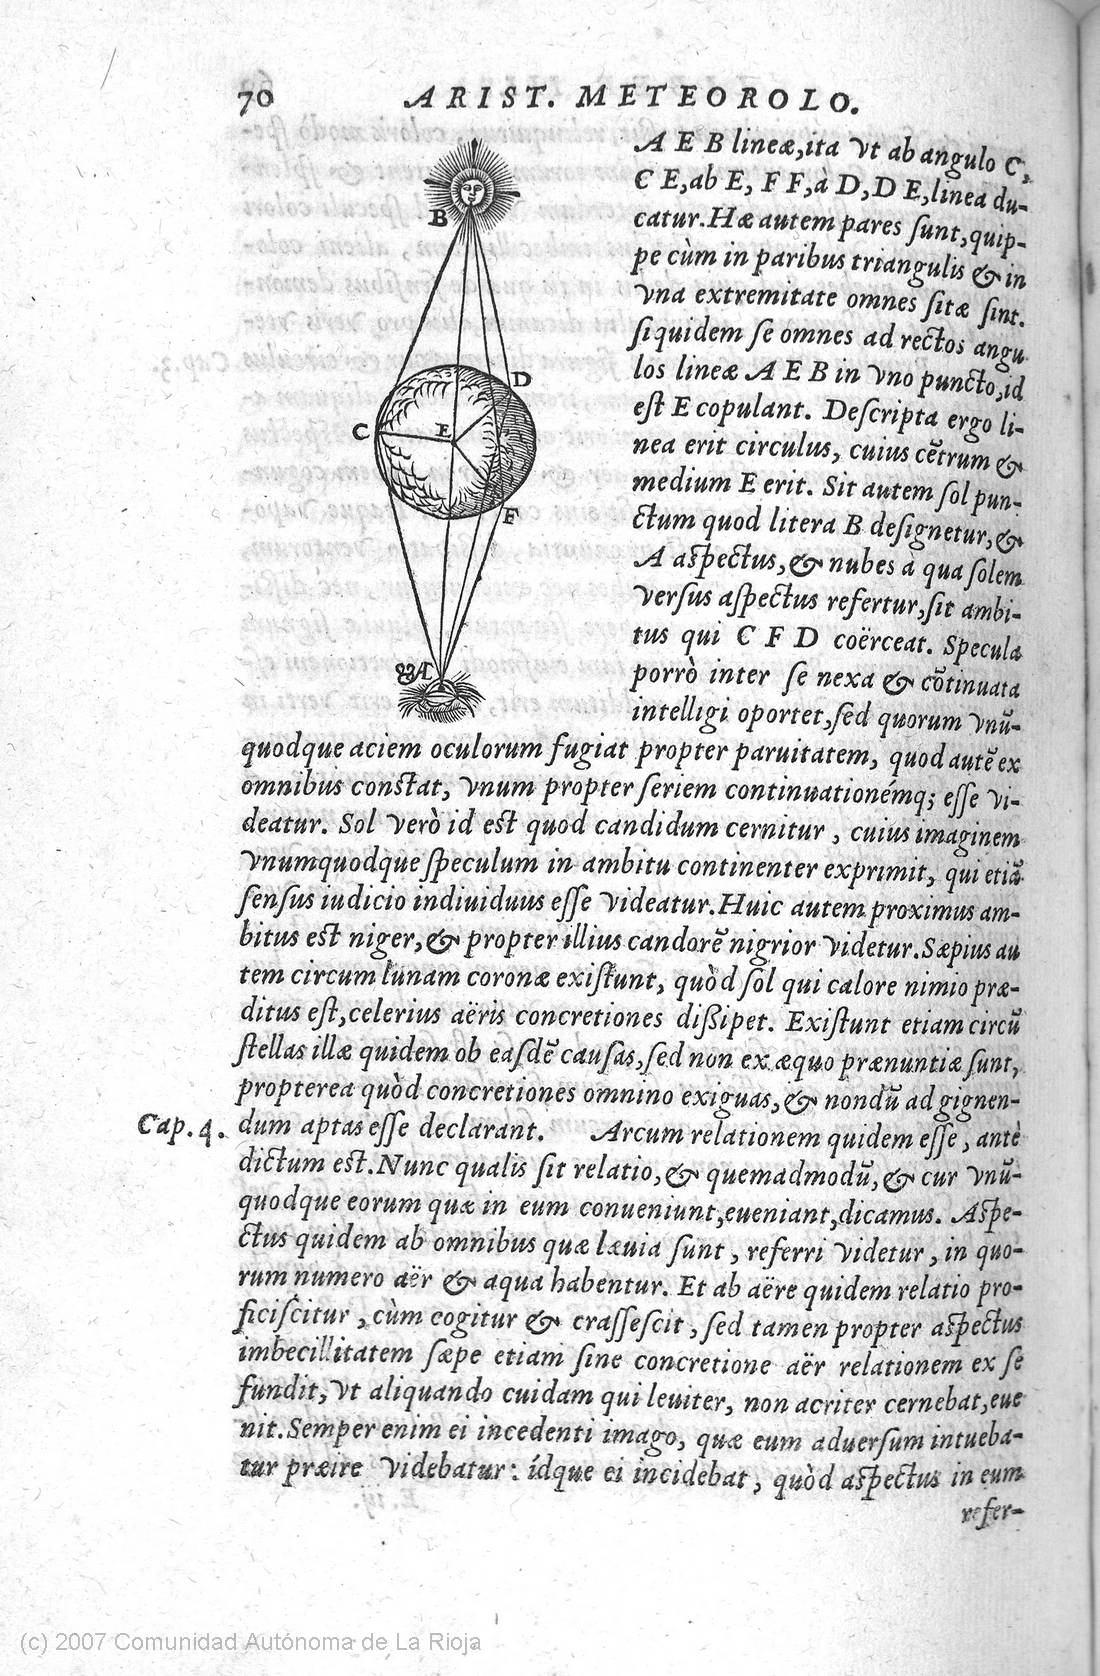 70 ARIST. METEOROLO.
B
D
C
E
F
A
A E B lineæ, ita vt ab angulo C,
C E, ab E, F F, a D, D E, linea du-
catur. Hæ autem pares sunt, quip-
pe cùm in paribus triangulis & in
vna extremitate omnes sitæ sint.
siquidem se omnes ad rectos angu
los lineæ A E B in vno puncto, id
est E copulant. Descripta ergo li-
nea erit circulus, cuius cẽtrum &
medium E erit. Sit autem sol pun-
ctum quod litera B designetur, &
A aspectus, & nubes à qua solem
versus aspectus refertur, sit ambi-
tus qui C F D coërceat. Specula
porrò inter se nexa & cõtinuata
intelligi oportet, sed quorum vnũ-
quodque aciem oculorum fugiat propter paruitatem, quod autẽ ex
omnibus constat, vnum propter seriem continuationémq; esse vi-
deatur. Sol verò id est quod candidum cernitur, cuius imaginem
vnumquodque speculum in ambitu continenter exprimit, qui etiã
sensus iudicio indiuiduus esse videatur. Huic autem proximus am-
bitus est niger, & propter illius candorẽ nigrior videtur. Sæpius au
tem circum lunam coronæ existunt, quòd sol qui calore nimio præ-
ditus est, celerius aëris concretiones dißipet. Existunt etiam circũ
stellas illæ quidem ob easdẽ causas, sed non ex æquo prænuntiæ sunt,
propterea quòd concretiones omnino exiguas, & nondũ ad gignen-
Cap. 4. dum aptas esse declarant. Arcum relationem quidem esse, antè
dictum est. Nunc qualis sit relatio, & quemadmodũ, & cur vnũ-
quodque eorum quæ in eum conueniunt, eueniant, dicamus. Aspe-
ctus quidem ab omnibus quæ læuia sunt, referri videtur, in quo-
rum numero aër & aqua habentur. Et ab aëre quidem relatio pro-
ficiscitur, cùm cogitur & crassescit, sed tamen propter aspectus
imbecillitatem sæpe etiam sine concretione aër relationem ex se
fundit, vt aliquando cuidam qui leuiter, non acriter cernebat, eue
nit. Semper enim ei incedenti imago, quæ eum aduersum intueba-
tur præire videbatur: ídque ei incidebat, quòd aspectus in eum
refer-
(c) 2007 Comunidad Autónoma de La Rioja